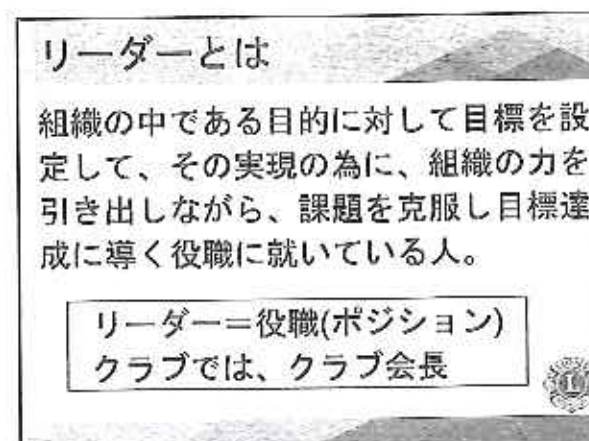 リーダーとは
組織の中である目的に対して目標を設
定して、その実現の為に、組織の力を
引き出しながら、課題を克服し目標達
成に導く役職に就いている人。
リーダー＝役職(ポジション)
クラブでは、クラブ会長
L